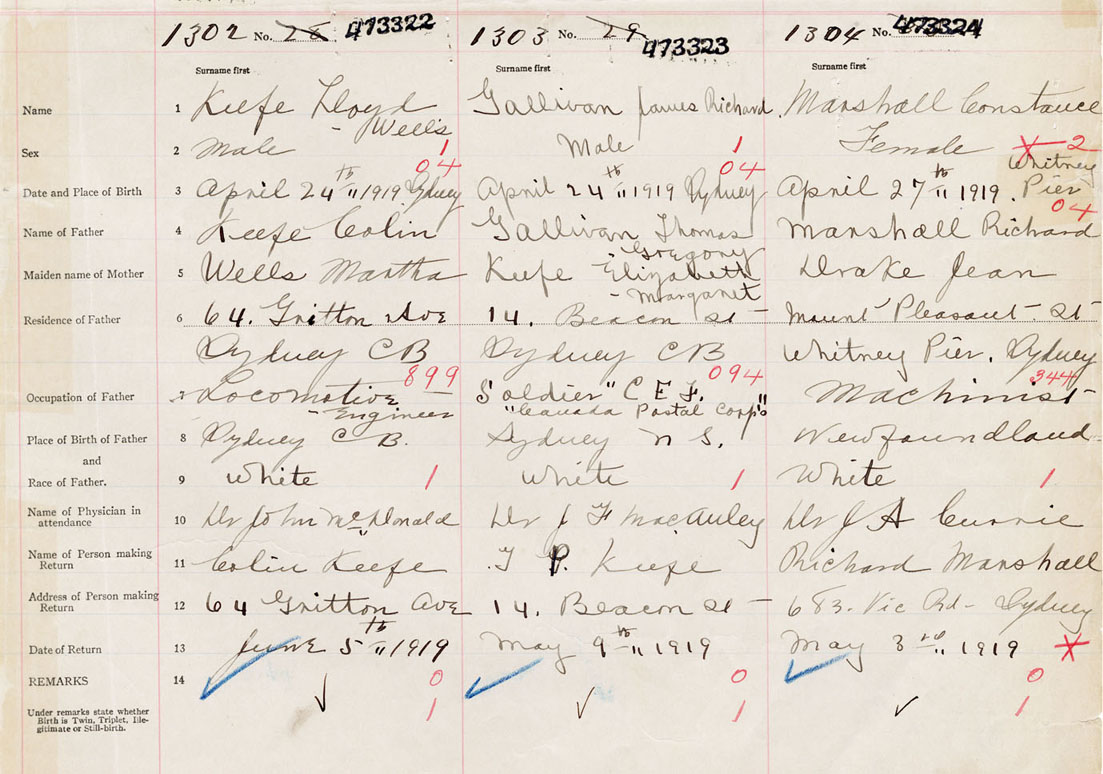 1302 No. 28 473322 1303 No. 29 473323 1304 No. 473324
Surname first Surname first Surname first
Name 1 Keefe Lloyd Gallivan James Richard Marshall Constance
- Wells
Sex 2 Male 1 Male 1 Female X 2
04 04 Whitney
Date and Place of Birth 3 April 24th " 1919 Sydney April 24th " 1919 Sydney April 27th " 1919. Pier
04
Name of Father 4 Keefe Colin Gallivan Thomas Marshall Richard
- Gregory
Maiden name of Mother 5 Wells Martha Keefe Elizabeth Drake Jean
- Margaret
Residence of Father 6 64. Gritton Ave 14. Beacon St - Mount Pleasant - St -
Sydney CB Sydney CB Whitney Pier. Sydney
899 094 344
Occupation of Father 7 Locomotive Soldier "C E F. Machinist
- Engineer "Canada Postal Corp's"
Place of Birth of Father 8 Sydney C B. Sydney N S. Newfoundland
and
Race of Father. 9 White 1 White 1 White 1
Name of Physician in
attendance 10 Dr John McDonald Dr J F MacAuley Dr J A Currie
Name of Person making
Return 11 Colin Keefe T P. Keefe Richard Marshall
Address of Person making
Return 12 64 Gritton Ave 14. Beacon St - 683. Vic Rd - Sydney
Date of Return 13 June 5th " 1919 May 9th " 1919 May 3rd " 1919 X
REMARKS 14 0 0 0
Under remarks state whether
Birth is Twin, Triplet, Ille-
gitimate or Still-birth. 1 1 1